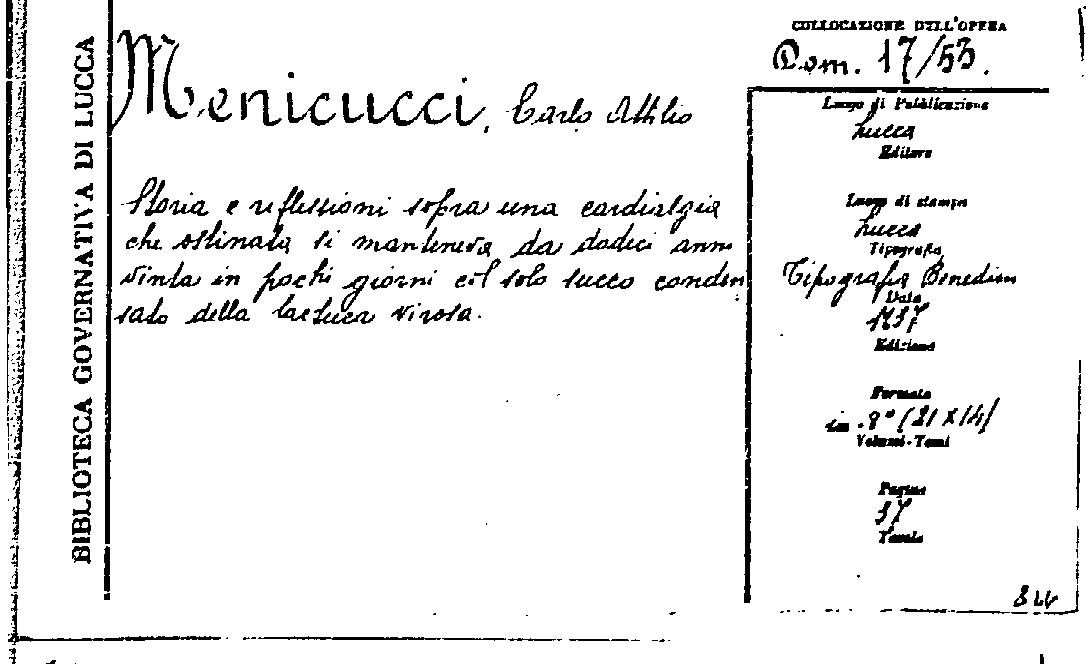 BIBLIOTECA GOVERNATIVA DI LUCCA
Menicucci, Carlo Attilio
Storia e riflessioni sopra una cardialgia
che ostinata si manteneva da dodici anni
vinta in pochi giorni col solo succo conden
sato della lactuca virosa.
COLLOCAZIONE DELL'OPERA
Dom. 17/53.
Luogo di Pubblicazione
Lucca
Editore
Luogo di stampa
Lucca
Tipografia
Tipografia Benedini
Data
Edizione
Formato
in-8° (21 X 14)
Volumi-Tomi
Pagine
37
Tavole